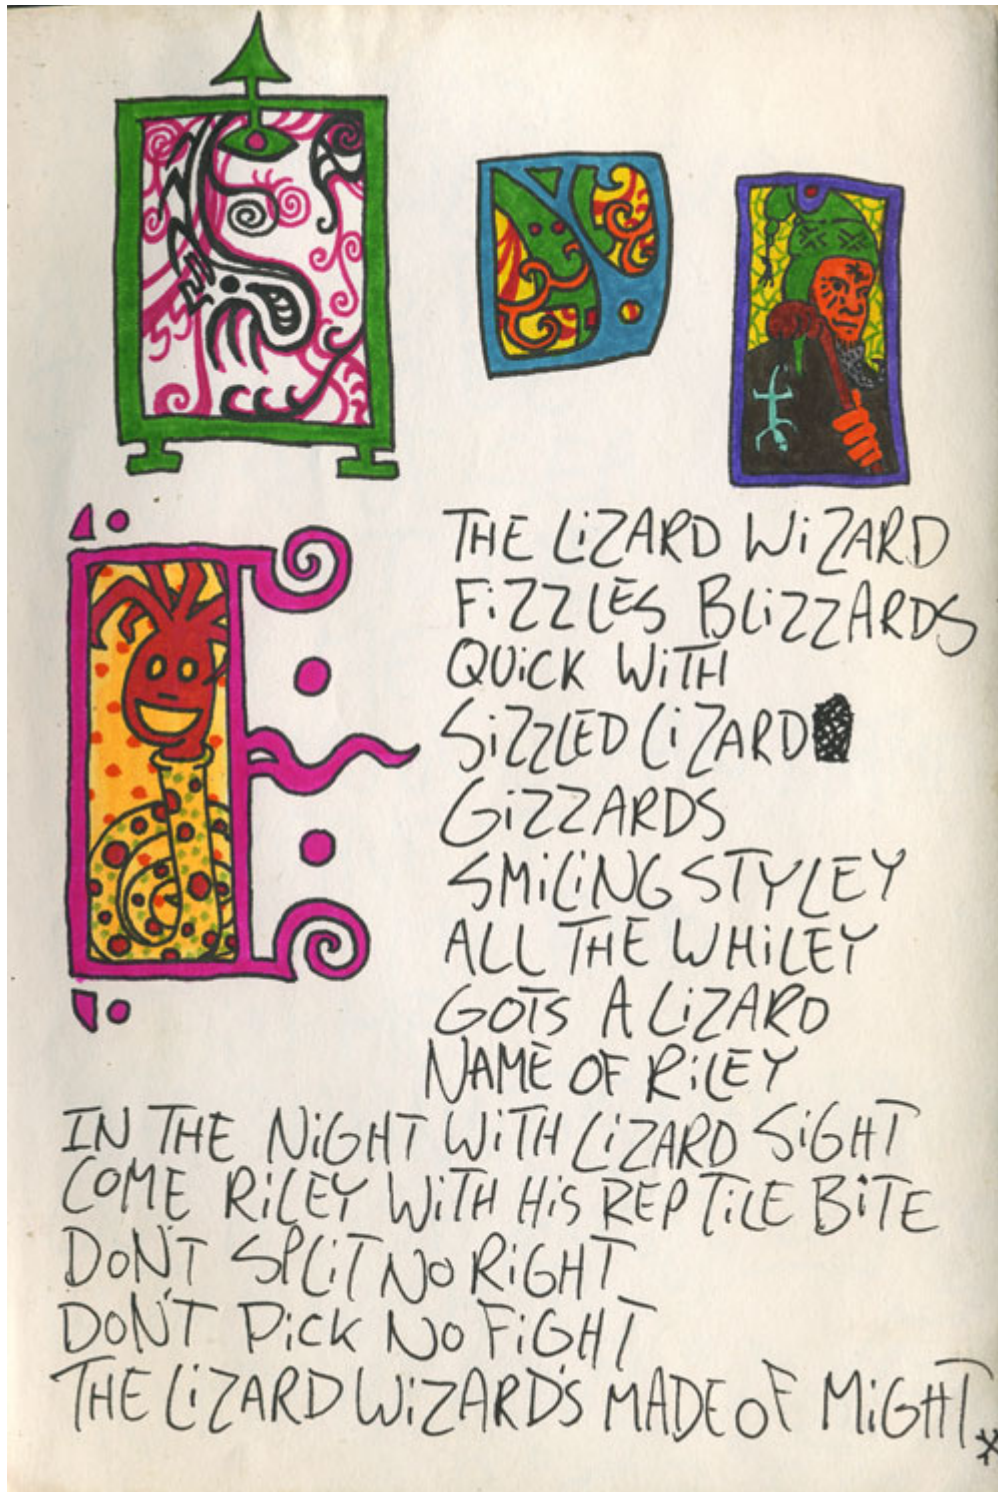 THE LiZARD WiZARD
FiZZLES BLiZZARDS
QUiCK WiTH
SiZZLED LiZARD
GiZZARDS
SMiLiNG STYLEY
ALL THE WHiLEY
GOTS A LiZARD
NAME OF RiLEY
IN THE NiGHT WiTH LiZARD SiGHT
COME RiLEY WiTH HiS REPTiLE BiTE
DON'T SPLiT NO RiGHT
DON'T PiCK NO FiGHT
THE LiZARD WiZARD'S MADE OF MiGHT